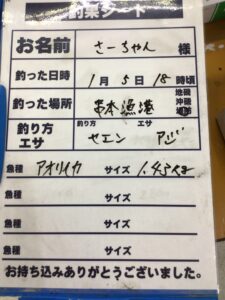 釣果シート
お名前 さーちゃん 様
釣った日時 1月5日18時頃
釣った場所 串本漁港 地磯 沖磯
釣り方 エサ 釣り方 ヤエン エサ アジ
魚種 アオリイカ サイズ 1.45kg
魚種 サイズ
魚種 サイズ
魚種 サイズ
お持ち込みありがとうございました。